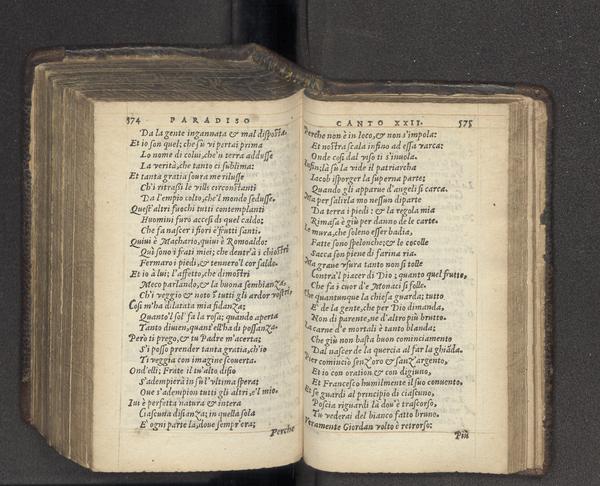 374 PARADISO
Da la gente ingannata & mal disposta.
Et io son quel; che sù vi portai prima
Lo nome di colui, che'n terra addusse
La verità, che tanto ci sublima:
Et tanta gratia soura me rilusse
Ch'i ritrassi le ville circonstanti
Da l'empio colto, che'l mondo sedusse.
Quest'altri fuochi tutti contemplanti
Huomini furo accesi di quel caldo;
Che fa nascer i fiori e'frutti santi.
Quiui è Machario, quiui è Romoaldo:
Quì sono i frati miei; che dentr'a i chiostri
Fermaro i piedi, & tennero'l cor saldo.
Et io à lui; l'affetto, che dimostri
Meco parlando, & la buona sembianza,
Ch'i veggio & noto'n tutti gli ardor vostri,
Cosi m'ha dilatata mia fidanza;
Quanto'l sol fa la rosa; quando aperta
Tanto diuen, quant'ell'ha di possanza.
Però ti prego, & tu Padre m'accerta;
S'i posso prender tanta gratia, ch'io
Ti veggia con imagine scouerta.
Ond'elli; Frate il tu'alto disio
S'adempierà in sù l'vltima spera;
Oue s'adempion tutti gli altri, e'l mio.
Iui è perfetta natura & intera
Ciascuna disianza; in quella sola
E' ogni parte là, doue sempr'era;
Perche
CANTO XXII. 575
Perche non è in loco, & non s'impola:
Et nostra scala infino ad essa varca:
Onde cosi dal viso ti s'inuola.
Infin; là sù la vide il patriarcha
Iacob isporger la superna parte;
Quando gli apparue d'angeli sì carca.
Ma per salirla mo nessun diparte
Da terra i piedi: & la regola mia
Rimasa è giù per danno de le carte.
Le mura, che soleno esser badia,
Fatte sono spelonche; & le cocolle
Sacca son piene di farina ria.
Ma graue vsura tanto non si tolle
Contra'l piacer di Dio; quanto quel frutto,
Che fa i cuor d'e Monaci sì folle.
Che quantunque la chiesa guarda; tutto
E' de la gente, che per Dio dimanda,
Non di parente, ne d'altro più brutto.
La carne d'e mortali è tanto blanda;
Che giù non basta buon cominciamento
Dal nascer de la quercia al far la ghiāda.
Pier cominciò senz'oro & sanz'argento,
Et io con oration & con digiuno,
Et Francesco humilmente il suo conuento.
Et se guardi al principio di ciascuno,
Poscia riguardi là dou'è trascorso,
Tu vederai del bianco fatto bruno.
Veramente Giordan volto è retrorso:
Più